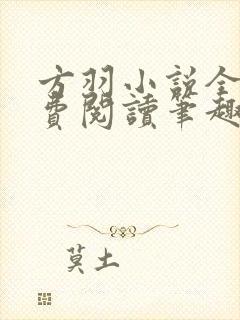 方羽小説全
費閱讀筆趣
莫土